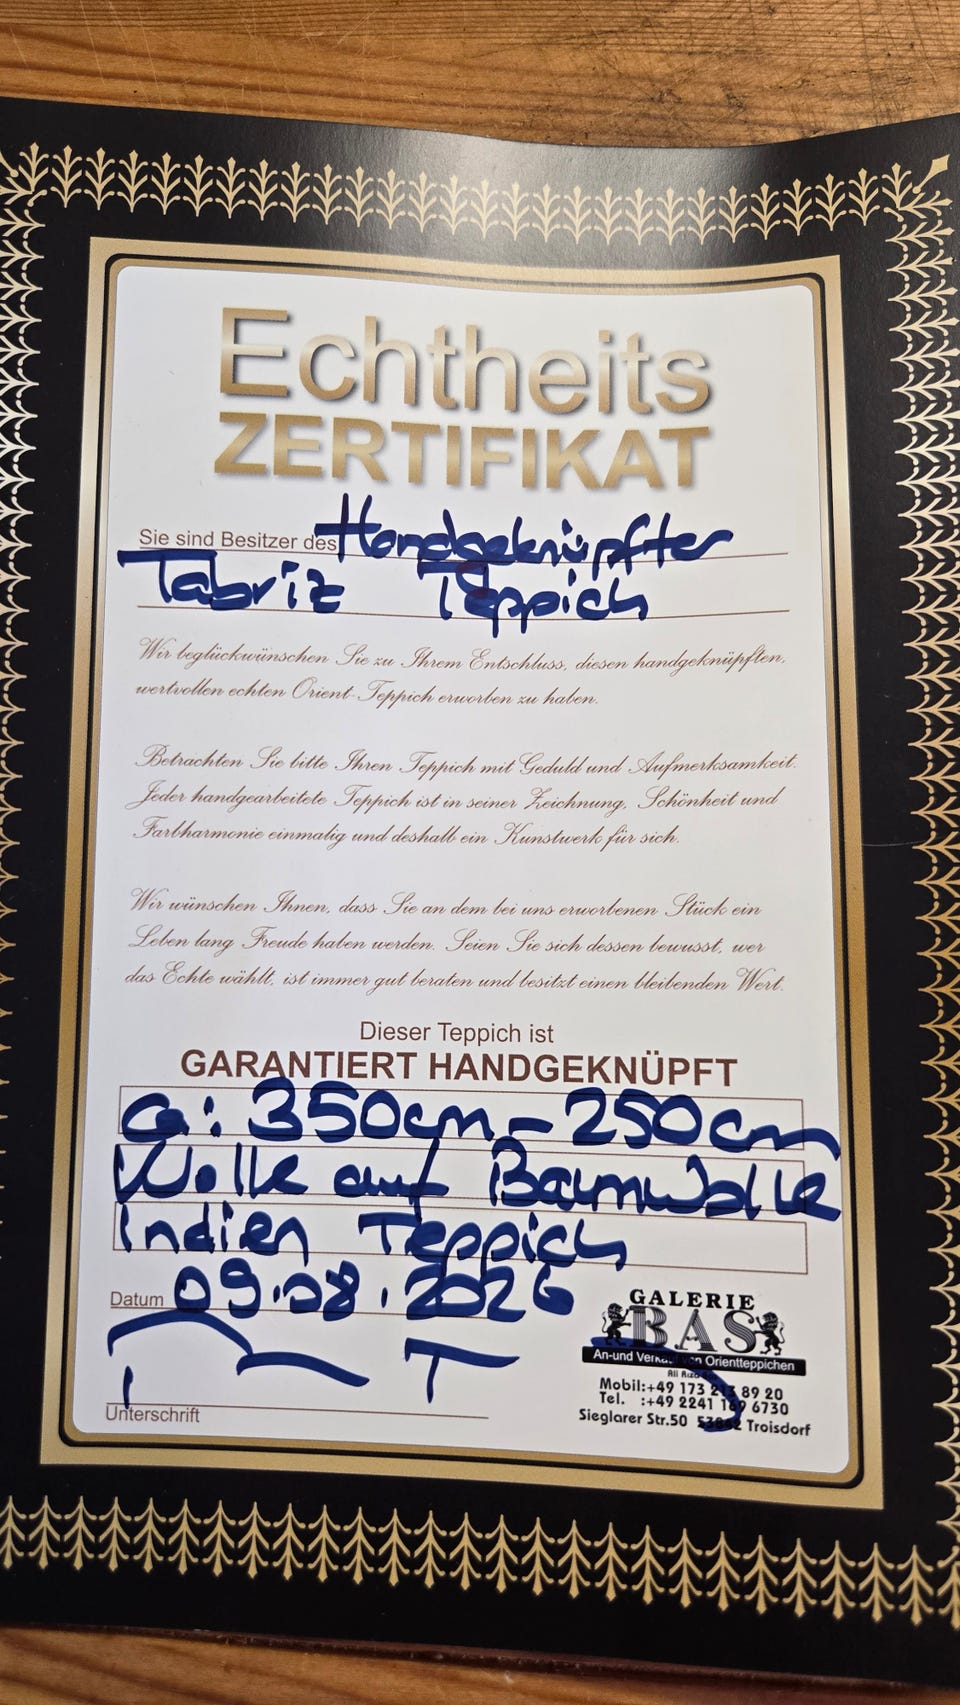 Echtheits
ZERTIFIKAT
Sie sind Besitzer des Handgeknüpfter
Tabriz Teppich
Wir beglückwünschen Sie zu Ihrem Entschluss, diesen handgeknüpften,
wertvollen echten Orient-Teppich erworben zu haben.
Betrachten Sie bitte Ihren Teppich mit Geduld und Aufmerksamkeit.
Jeder handgearbeitete Teppich ist in seiner Zeichnung, Schönheit und
Farbharmonie einmalig und deshalb ein Kunstwerk für sich.
Wir wünschen Ihnen, dass Sie an dem bei uns erworbenen Stück ein
Leben lang Freude haben werden. Seien Sie sich dessen bewusst, wer
das Echte wählt, ist immer gut beraten und besitzt einen bleibenden Wert.
Dieser Teppich ist
GARANTIERT HANDGEKNÜPFT
ca: 350cm - 250cm
Wolle auf Baumwolle
Indien Teppich
Datum 09.08.2026
GALERIE
BAS
An-und Verkauf von Orientteppichen
Ali Riza
Mobil:+49 173 213 89 20
Tel. :+49 2241 169 6730
Sieglarer Str.50 53842 Troisdorf
Unterschrift